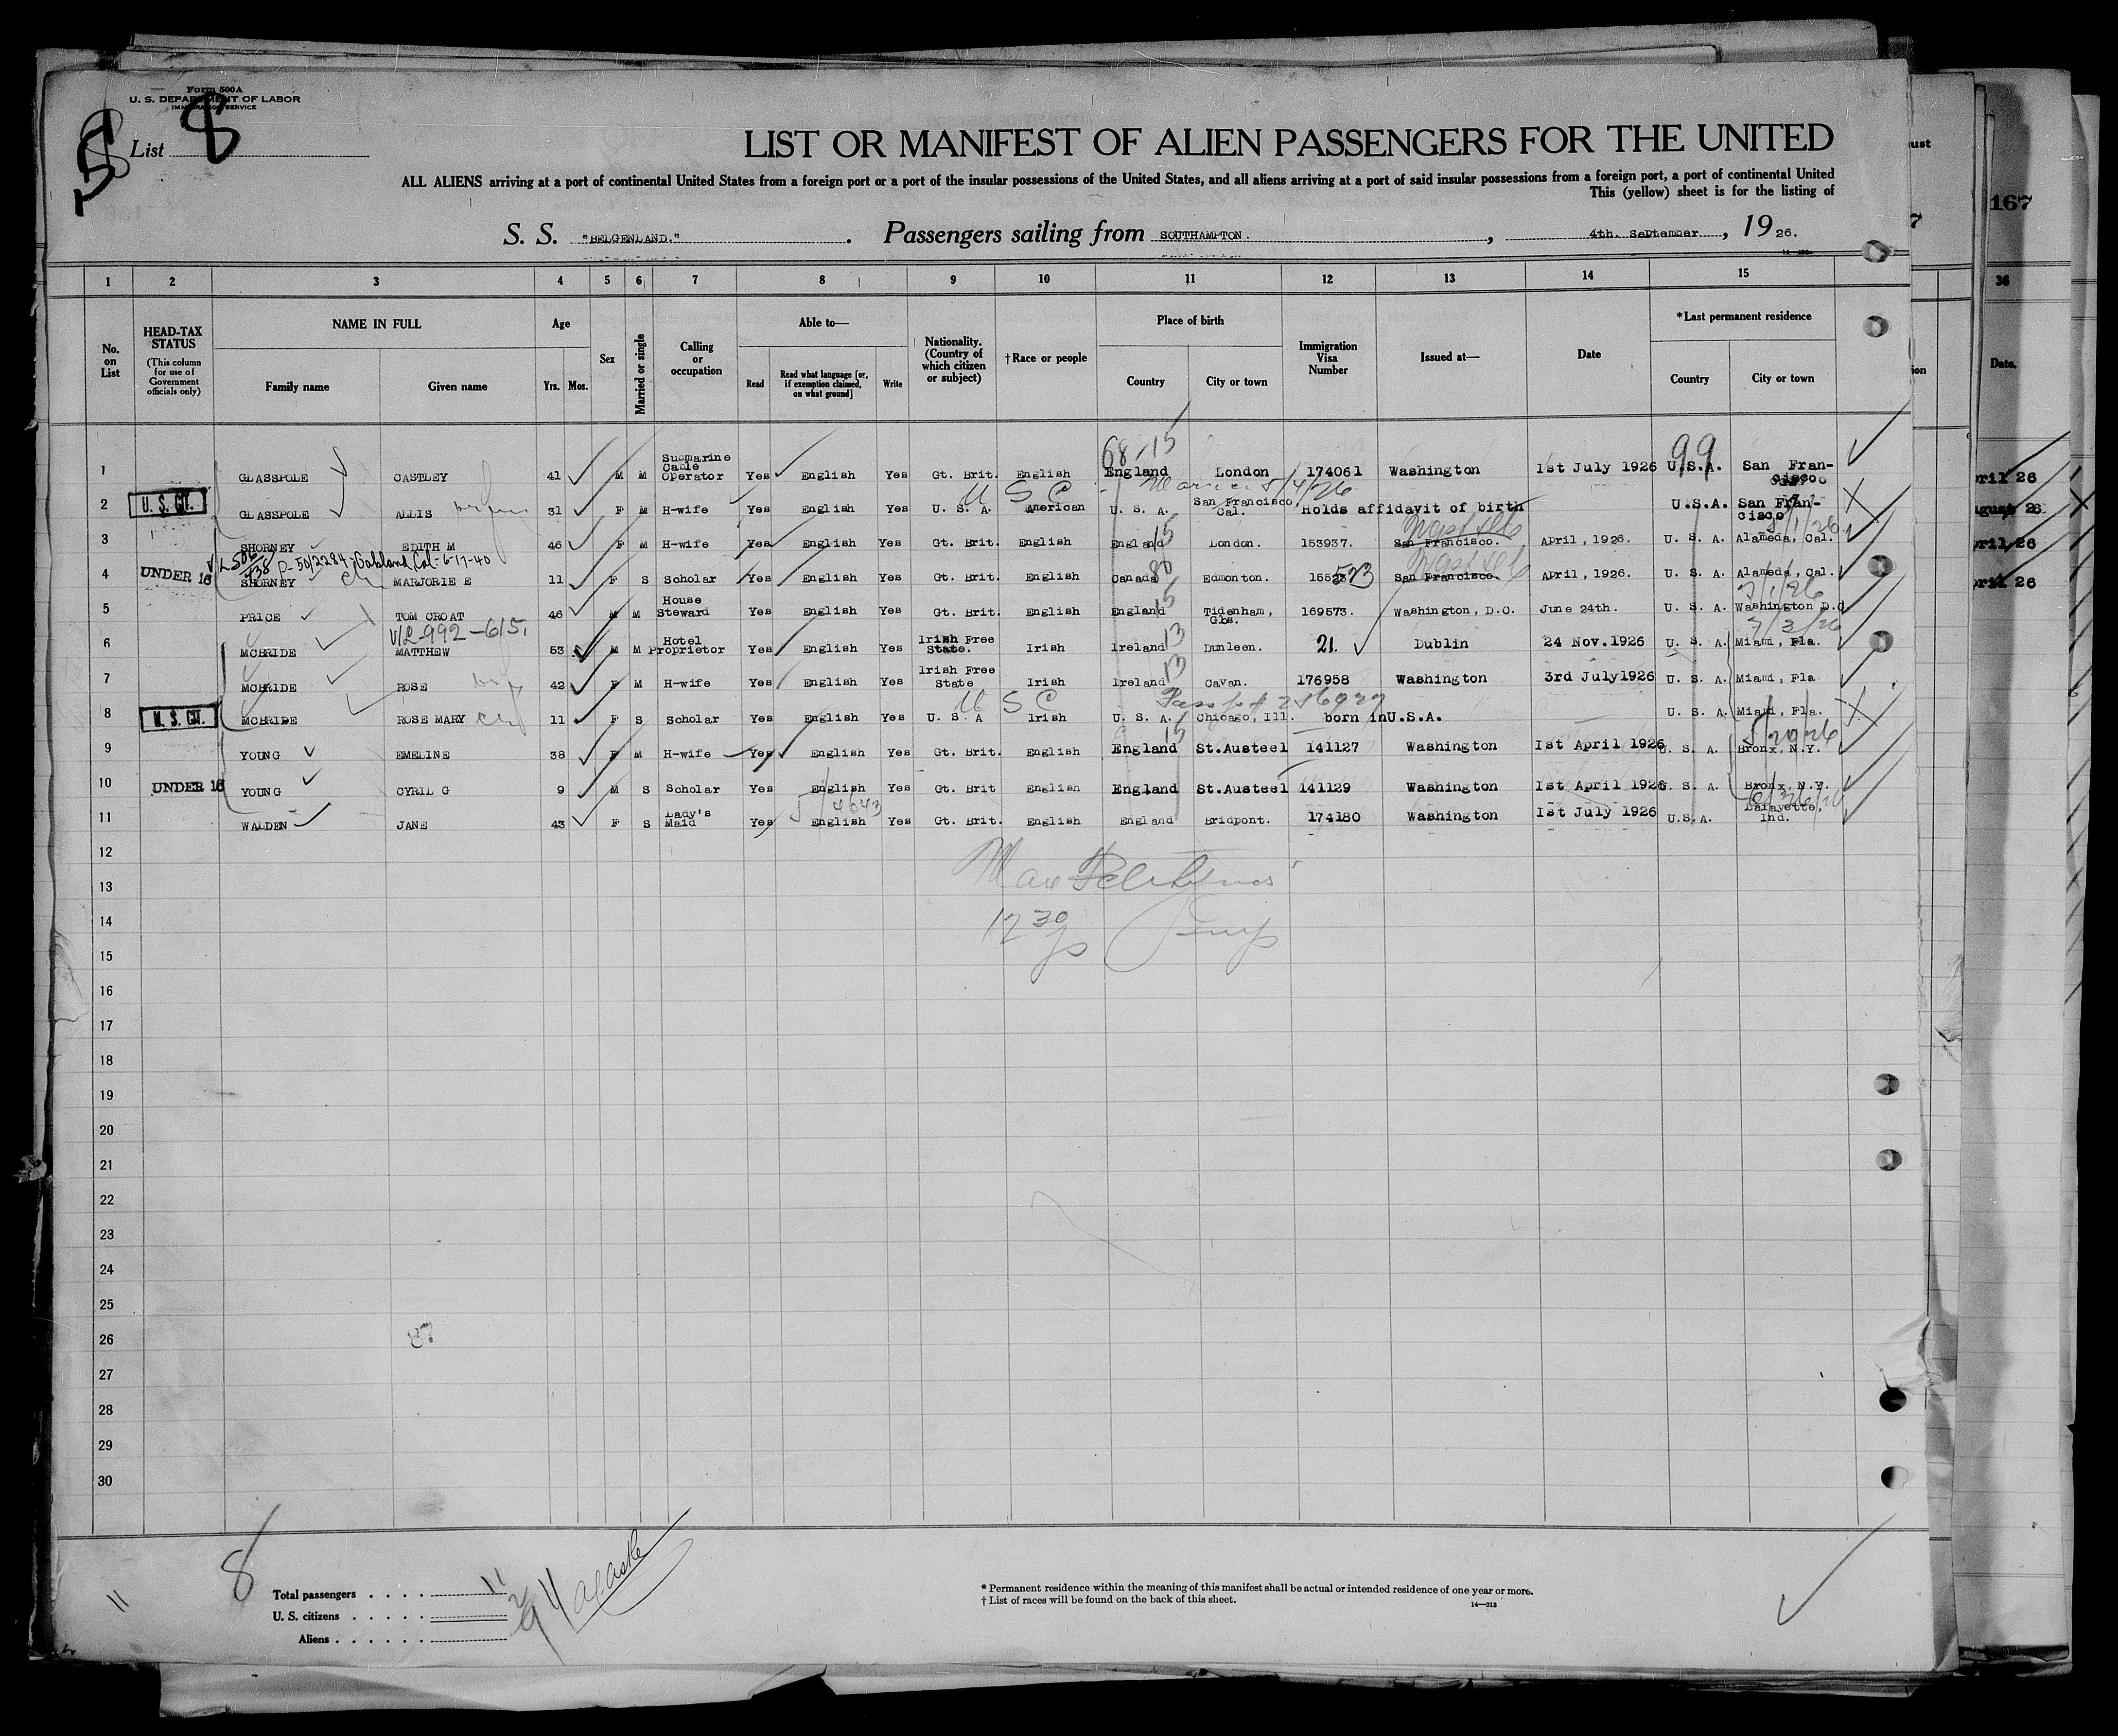 Form 500 A
U. S. DEPARTMENT OF LABOR
IMMIGRATION SERVICE
List 8
5
LIST OR MANIFEST OF ALIEN PASSENGERS FOR THE UNITED
ALL ALIENS arriving at a port of continental United States from a foreign port or a port of the insular possessions of the United States, and all aliens arriving at a port of said insular possessions from a foreign port, a port of continental United
This (yellow) sheet is for the listing of
S. S. "BELGENLAND." Passengers sailing from SOUTHAMPTON. , 4th. September , 19 26.
ust
167
7
1 2 3 4 5 6 7 8 9 10 11 12 13 14 15
36
No. on List
HEAD-TAX STATUS (This column for use of Government officials only)
NAME IN FULL Family name Given name
Age Yrs. Mos.
Sex
Married or single
Calling or occupation
Able to— Read Read what language [or, if exemption claimed, on what ground] Write
Nationality. (Country of which citizen or subject)
†Race or people
Place of birth Country City or town
Immigration Visa Number
Issued at—
Date
*Last permanent residence Country City or town
ion
Date.
68-15 99
1 GLASSPOLE CASTLEY 41 M M Submarine Cable Operator Yes English Yes Gt. Brit. English England London 174061 Washington 1st July 1926 U.S.A. San Francisco
pril 26
U S C Married 8/4/26
2 U. S. CIT. GLASSPOLE ALLIS 31 F M H-wife Yes English Yes U. S. A. American U. S. A. San Francisco, Cal. Holds affidavit of birth U.S.A San Francisco
ugust 26
15 8/1/26
3 SHORNEY EDITH M 46 F M H-wife Yes English Yes Gt. Brit. English England London. 153937. San Francisco. April, 1926. U. S. A. Alameda, Cal.
pril 26
V/L 506/738 P-50/2284-Oakland, Cal-6-17-40
80
4 UNDER 16 SHORNEY MARJORIE E 11 F S Scholar Yes English Yes Gt. Brit. English Canada Edmonton. 155 573 San Francisco. April, 1926. U. S. A. Alameda, Cal.
pril 26
15 7/1/26
5 PRICE TOM CROAT 46 M M House Steward Yes English Yes Gt. Brit. English England Tidenham, Gbs. 169573. Washington, D.C. June 24th. U. S. A. Washington D.C
V/L-992-615, 13 7/3/26
6 MCBRIDE MATTHEW 53 M M Hotel Proprietor Yes English Yes Irish Free State. Irish Ireland Dunleen. 21. Dublin 24 Nov.1926 U. S. A. Miami, Fla.
13
7 MCBRIDE ROSE 42 F M H-wife Yes English Yes Irish Free State Irish Ireland Cavan. 176958 Washington 3rd July1926 U. S. A. Miami, Fla
U S C
8 U. S. CIT. MCBRIDE ROSE MARY 11 F S Scholar Yes English Yes U. S. A Irish U. S. A. Chicago, Ill. born inU.S.A. U. S. A. Miami, Fla.
15
9 YOUNG EMELINE 38 F M H-wife Yes English Yes Gt. Brit. English England St.Austeel 141127 Washington 1st April 1926 U. S. A. Bronx, N.Y.
10 UNDER 16 YOUNG CYRIL G 9 M S Scholar Yes English Yes Gt. Brit English England St.Austeel 141129 Washington 1st April 1926 U. S. A. Bronx, N.Y.
11 WALDEN JANE 43 F S Lady's Maid Yes English Yes Gt. Brit. English England Bridpont. 174180 Washington 1st July 1926 U.S.A. Lafayette, Ind.
12
13
14
15
16
17
18
19
20
21
22
23
24
25
26
27
28
29
30
8
11
Total passengers . . . . 11
U. S. citizens . . . . . 2
Aliens . . . . . . 9
* Permanent residence within the meaning of this manifest shall be actual or intended residence of one year or more.
† List of races will be found on the back of this sheet.
14—213